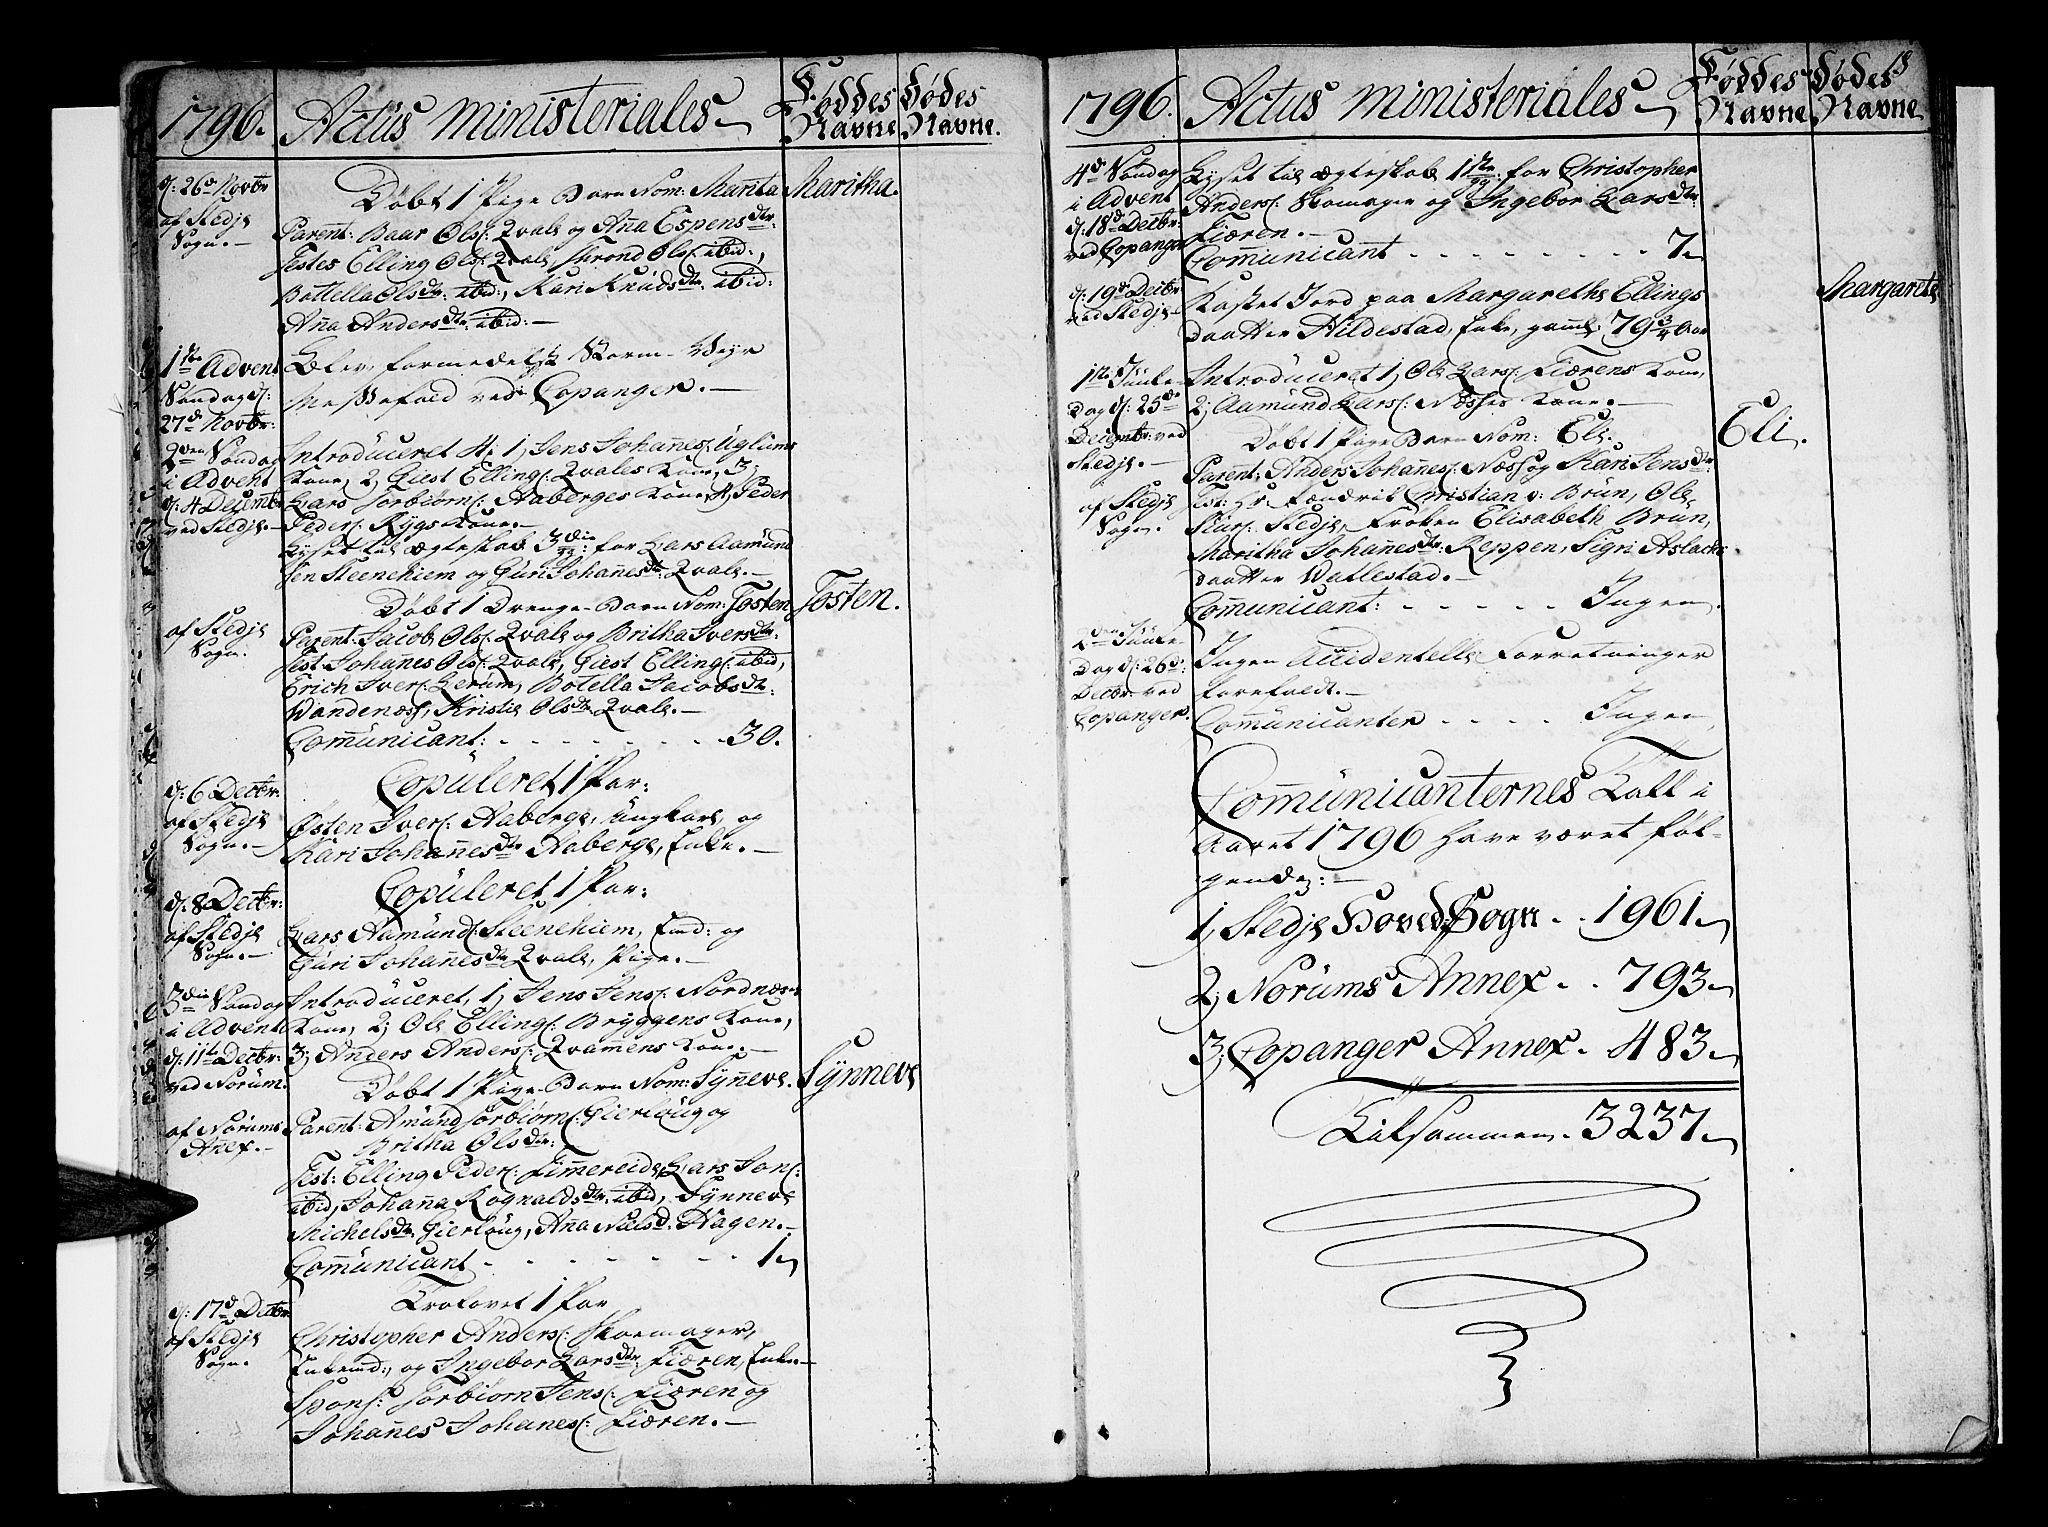 1796.
Actus Ministeriales
Föddes Navne
Dödes Navne.
d: 26de Novbr
af Stedje
Sogn.
Döbt 1 Pige Barn Nom: Marita
Maritha.
Parent: Baar Ols: Qvale og Anna Espensdtr:
Testes Elling Ols: Qvale, Thrond Ols: ibid:,
Bottella Olsdtr: ibid:, Kari Knudsdtr: ibid:
Anna Andersdtr: ibid:
1ste Advent
Söndag d:
27de Novbr:
Blev, formedelst Storm-Veyr
Messefald ved Copanger.
2den Söndag
i Advent
d: 4 Decembr
ved Stedje.
Introduceret 4, 1, Jens Johannes: Uglums
Kone, 2, Giest Elling: Qvales Kone, 3,
Lars Torbiörn: Aaberges Kone, 4, Peder
Peders: Rygs Kone.
Lyset til Ægteskab 3die gg: for Lars Aamund
sen Steenehiem og Guri Johannesdtr: Qvale.
af Stedje
Sogn.
Döbt 1 Drenge-Barn Nom: Tosten
Tosten.
Parent: Jacob Ols: Qvale og Britha Iversdtr:
Test: Johannes Ols: Qvale, Giest Elling: ibid,
Erich Ivers: Lerum, Botella Jacobsdtr:
Wandenæss, Kristie Olsdtr Qvale.
Communicant: 30.
d: 6 Decbr:
af Stedje
Sogn.
Copuleret 1 Par:
Östen Ivers: Aaberge, Ungkarl, og
Kari Johannesdtr Aaberge, Enke.
d: 8 Decbr:
af Stedje
Sogn.
Copuleret 1 Par:
Lars Aamund: Steenehiem, Emd: og
Guri Johannesdtr Qvale, Pige.
3die Söndag
i Advent
d: 11te Decbr:
ved Norum.
Introduceret, 1, Jens Jens: Nordnæs
Kone, 2, Ole Elling: Bryggens Kone,
3, Anders Anders: Qvamens Kone.
Döbt 1 Pige-Barn Nom: Synneve.
Synneve
af Norums
Anex.
Parent: Amund Torbiörn: Gierlöug og
Britha Olsdtr:
Test: Elling Peder: Fimmereide, Lars Jon:
ibid, Johanna Rognaldsdtr: ibid, Synneve
Michelsdtr Gierlöug, Ana Nielsd: Hagen.
Communicant 1
d: 17de Decbr
af Stedje
Sogn.
Trolovet 1 Par
Christopher Anders: Skoemager,
Enkemd:, og Ingebor Larsdtr: Fiæren, Enke
Spons: Torbiörn Jens: Fiæren og
Johannes Johanes: Fiæren.
18
1796.
Actus Ministeriales
Föddes Navne
Dödes Navne
4de Söndag
i Advent
d: 18de Decbr:
ved Copanger
Lyset til Ægteskab 1ste gg: for Christopher
Anders: Skomager og Ingebor Larsdtr:
Fiæren.
Communicant 7
d: 19de Decbr
ved Stedje
Kastet Jord paa Margarethe Ellings
daatter Hildestad, Enke, gaml: 79 3/4 Aar
Margarete
1ste Juule-
Dag d: 25de
Decembr: ved
Stedje.
Introduceret 1, Ole Lars: Fiærens Kone,
2, Aamund Lars: Næsses Kone.
Döbt 1 Pige Barn Nom: Eli.
Eli.
af Stedje
Sogn.
Parent: Anders Johannes: Næss og Kari Jensdtr:
Test: Hr. Fændrik Christian v: Brün, Ole
Siurs: Stedje, Fröken Elisabeth Brün,
Maritha Johannesdtr: Reppen, Sigri Aslachs
daatter Vallestad.
Communicant: Ingen.
2den Juule-
Dag d: 26de:
Decbr: ved
Copanger.
Ingen Accidentelle Forretninger
forefaldt.
Communicanter Ingen,
Communicanternes Tall i
Aaret 1796 have været föl-
gende:
1, Stedje Hoved Sogn 1961
2, Norums Annex 793
3, Copanger Annex 483
Tilsammen 3237